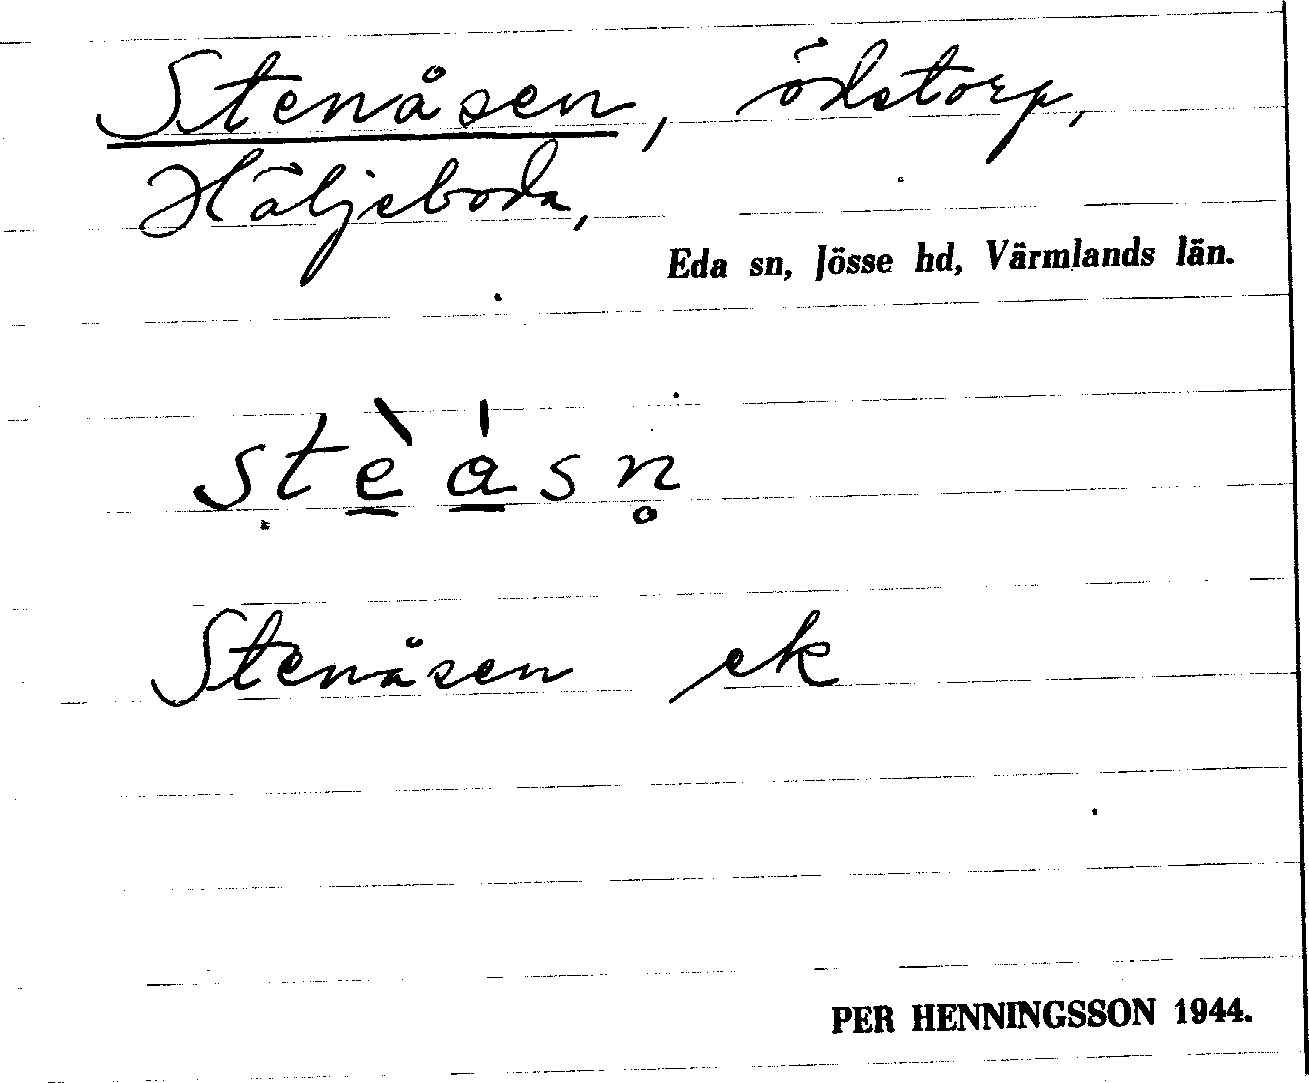 Stenåsen, ödetorp,
Häljeboda,
Eda sn, Jösse hd, Värmlands län.
stè̱a̱̍sn̥
Stenåsen ek
PER HENNINGSSON 1944.